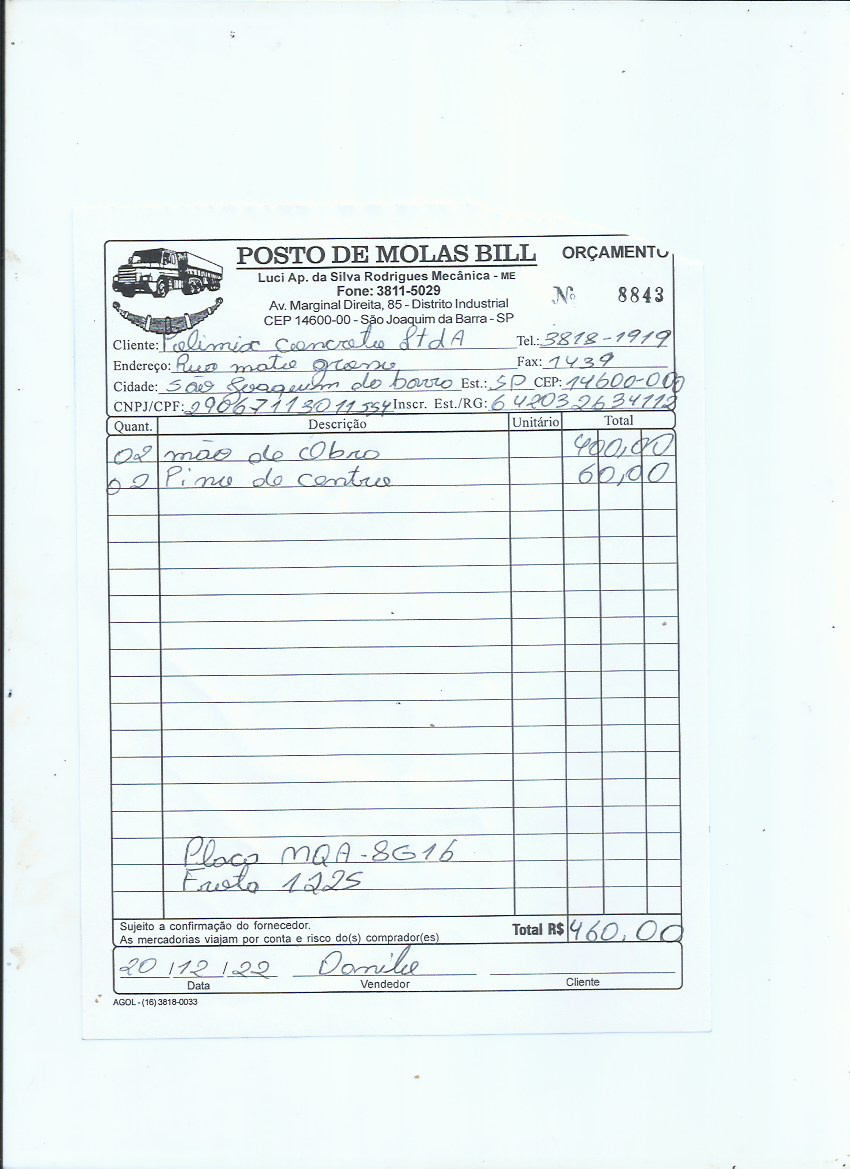 POSTO DE MOLAS BILL
ORÇAMENTO
Luci Ap. da Silva Rodrigues Mecânica - ME
Fone: 3811-5029
Av. Marginal Direita, 85 - Distrito Industrial
Nº 8843
CEP 14600-00 - São Joaquim da Barra - SP
Cliente: concreto LtdA Tel.: 3818-1919
Endereço: Rua mato grosso Fax: 1439
Cidade: São Joaquim da barra Est.: SP CEP: 14600-000
CNPJ/CPF: Inscr. Est./RG: 642032634112
Quant. Descrição Unitário Total
02 mão de Obra 400,00
02 Pino de centro 60,00
Placa MQA-8G16
Frota 1225
Sujeito a confirmação do fornecedor.
As mercadorias viajam por conta e risco do(s) comprador(es)
Total R$ 460,00
20/12/22 Danilo
Data Vendedor Cliente
AGOL - (16) 3818-0033